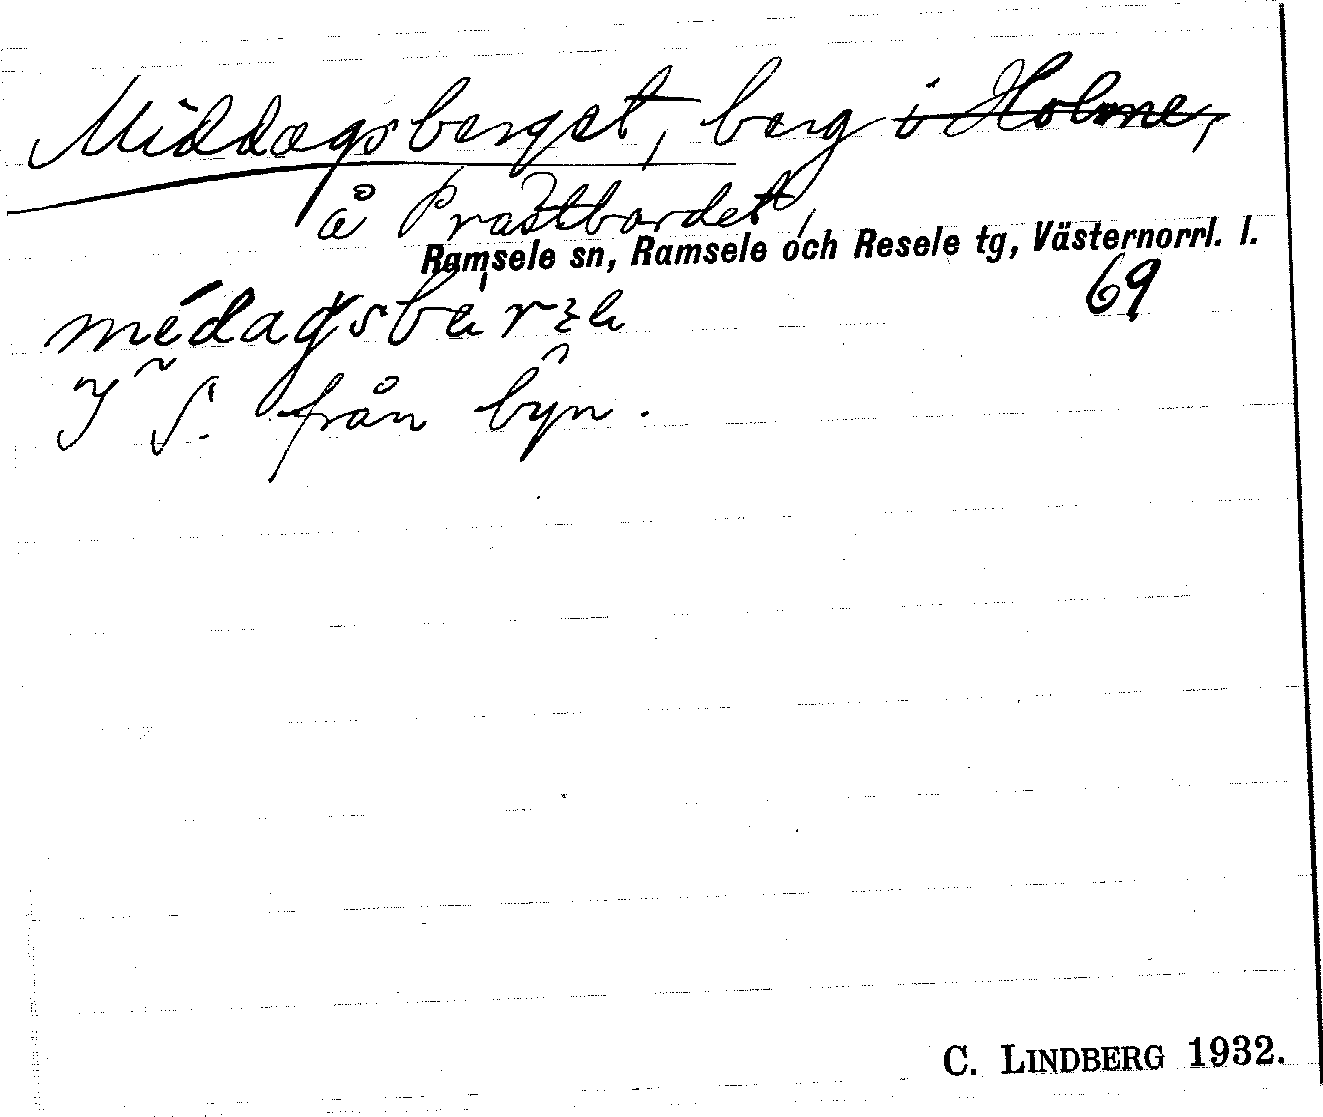 Middagsberget, berg i Holme,
å Prästbordet,
Ramsele sn, Ramsele och Resele tg, Västernorrl. l.
69
I S. från byn.
C. LINDBERG 1932.